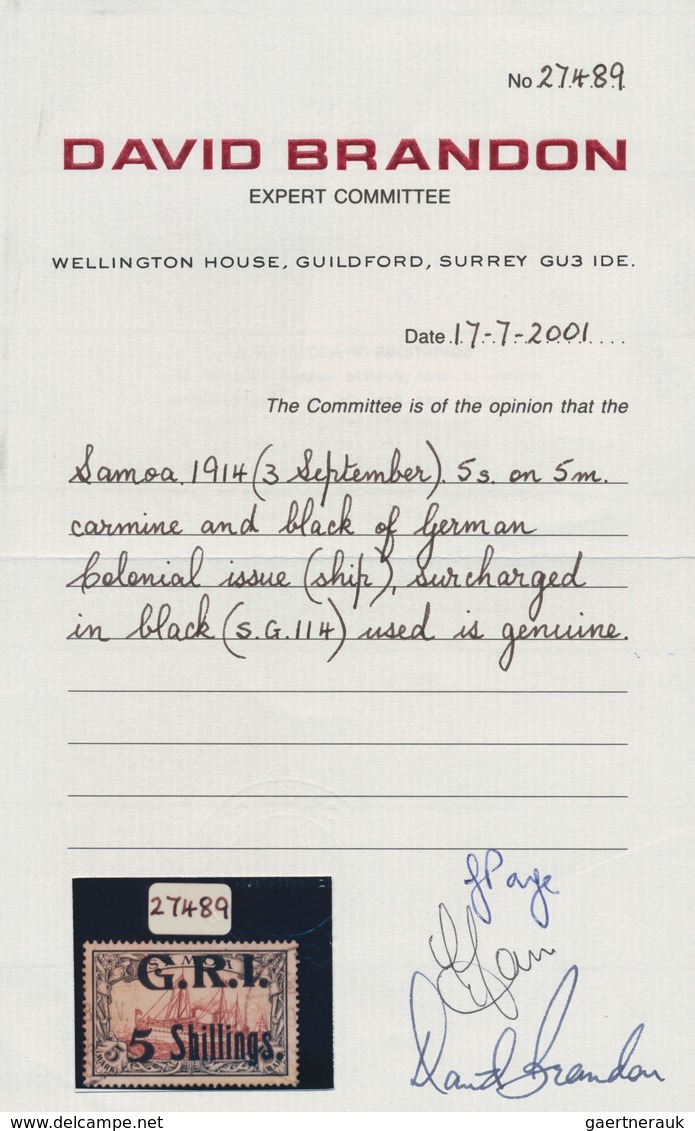 No 27489
DAVID BRANDON
EXPERT COMMITTEE
WELLINGTON HOUSE, GUILDFORD, SURREY GU3 IDE.
Date 17-7-2001....
The Committee is of the opinion that the
Samoa. 1914 (3 September). 5s. on 5m.
carmine and black of German
Colonial issue (ship), surcharged
in black (S.G.114) used is genuine.
27489
SAMOA
G.R.I.
5 Shillings.
5
David Brandon
www.delcampe.net
gaertnerauk